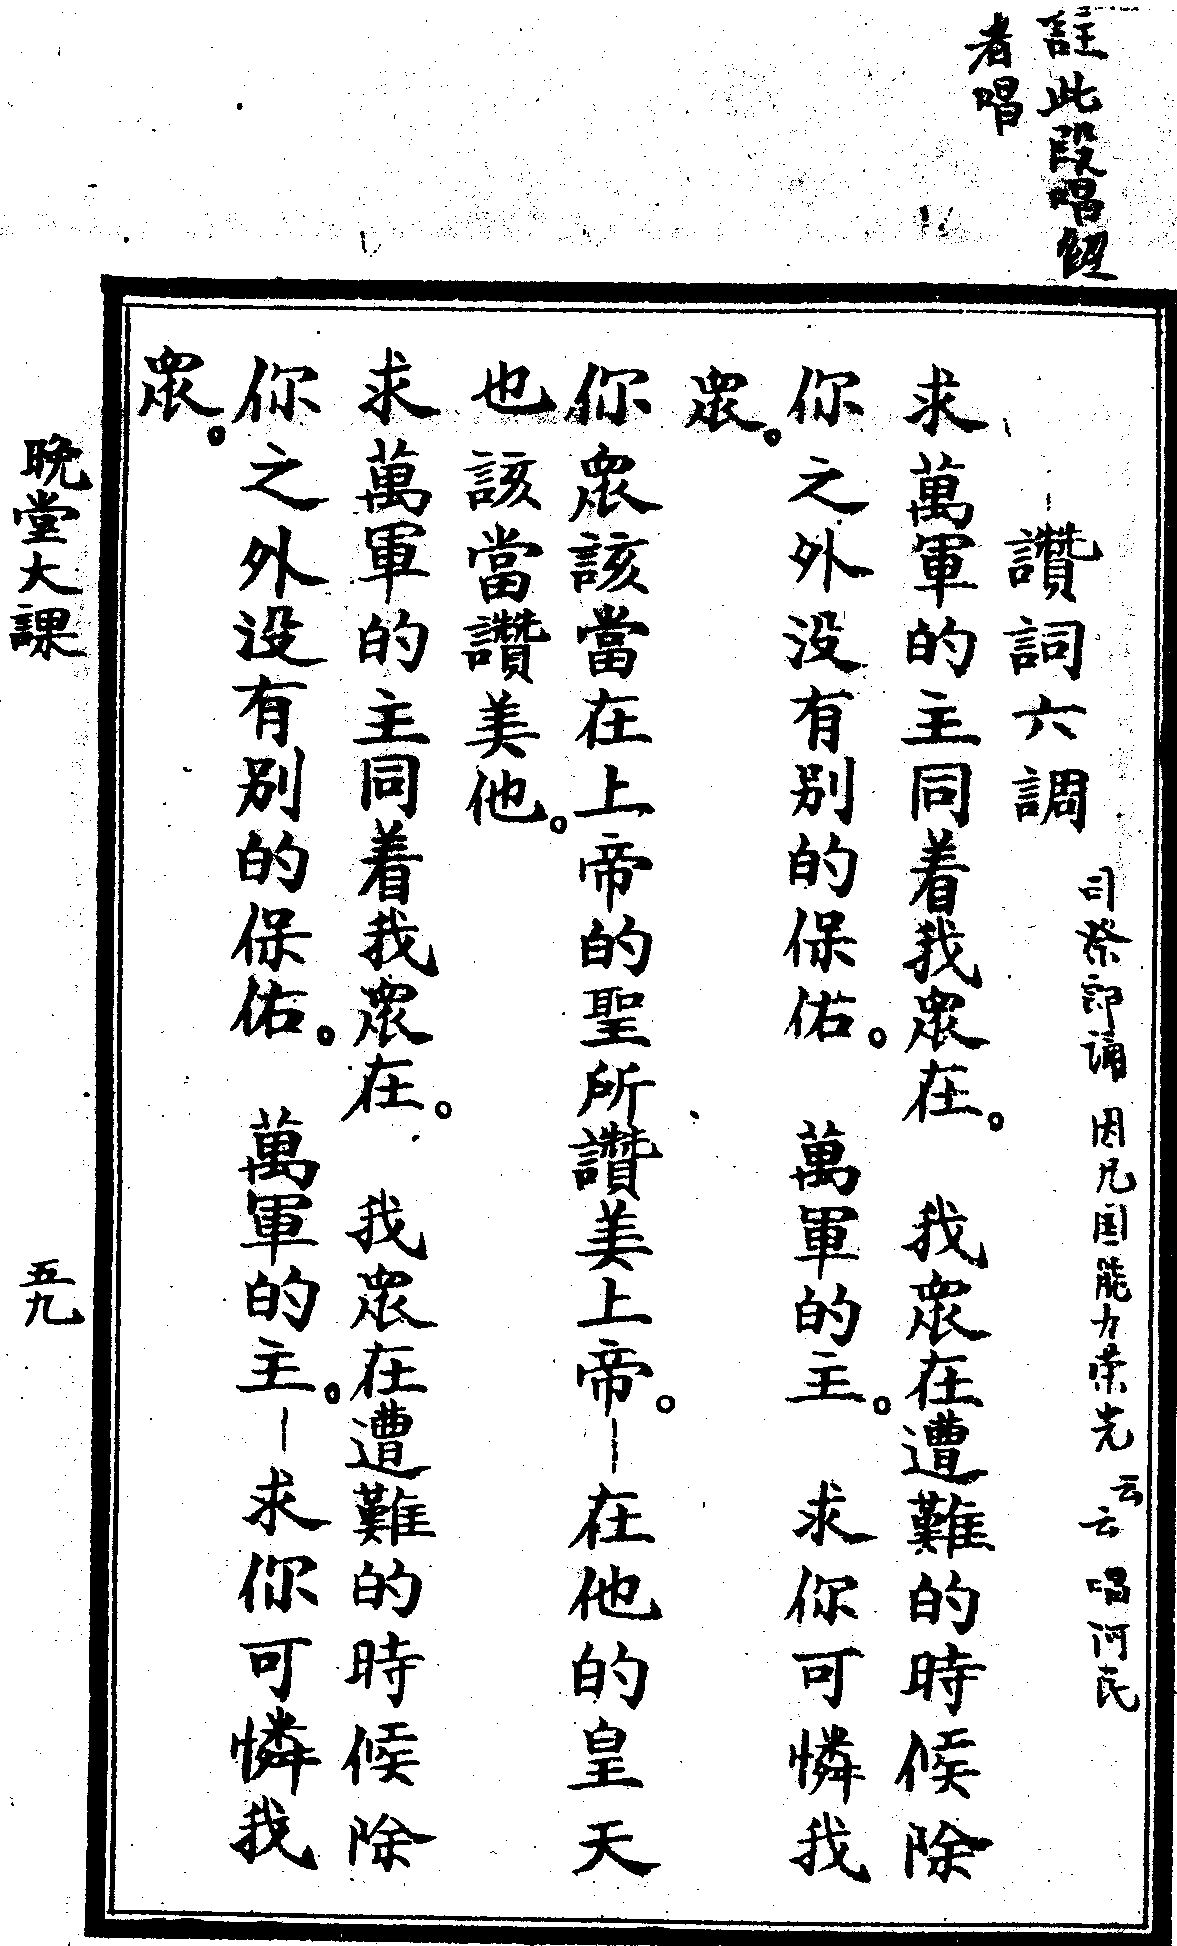 註此段唱經
者唱
司祭即誦 因凡国能力荣光 云云 唱阿民
讚詞六調
求萬軍的主同着我眾在。 我眾在遭難的時候除
你之外没有别的保佑。 萬軍的主。 求你可憐我
眾。
你眾該當在上帝的聖所讚美上帝。—在他的皇天
也該當讚美他。
求萬軍的主同着我眾在。 我眾在遭難的時候除
你之外没有别的保佑。 萬軍的主。—求你可憐我
眾。
晚堂大課
五九